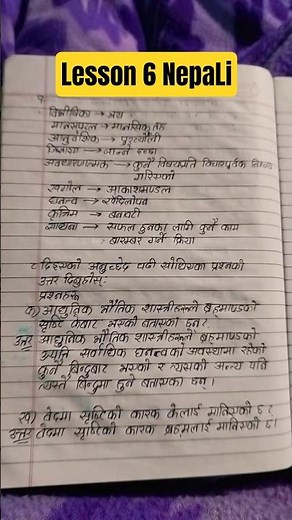 Lesson 6 NepaLi
विभीषिका → भय
मानसपटल → मानसिक तह
आनुवंशिक → पुस्तौंली
जिज्ञासा → जान्ने इच्छा
अवधारणात्मक → कुनै विषयप्रति विचारपूर्वक
गरिएको
खगोल → आकाशमण्डल
घनत्व →
कृत्रिम → बनावटी
साधना → सफल हुनका लागि कुनै काम
बारम्बार गर्ने क्रिया
८ दिइएको अनुच्छेद पढी सोधिएका प्रश्नको
उत्तर दिनुहोस्:
प्रश्नहरू
क) आधुनिक भौतिक शास्त्रीहरूले ब्रह्माण्डको
सृष्टि केबाट भएको बताएका छन्?
उत्तर आधुनिक भौतिक शास्त्रीहरूले ब्रह्माण्डको
उत्पत्ति सर्वाधिक घनत्वको अवस्थामा रहेको
कुनै बिन्दुबाट भएको र त्यसको अन्त्य पनि
त्यस्तै बिन्दुमा हुने बताएका छन्।
ख) वेदमा सृष्टिको कारक केलाई मानिएको छ?
उत्तर वेदमा सृष्टिको कारक ब्रह्मलाई मानिएको छ।